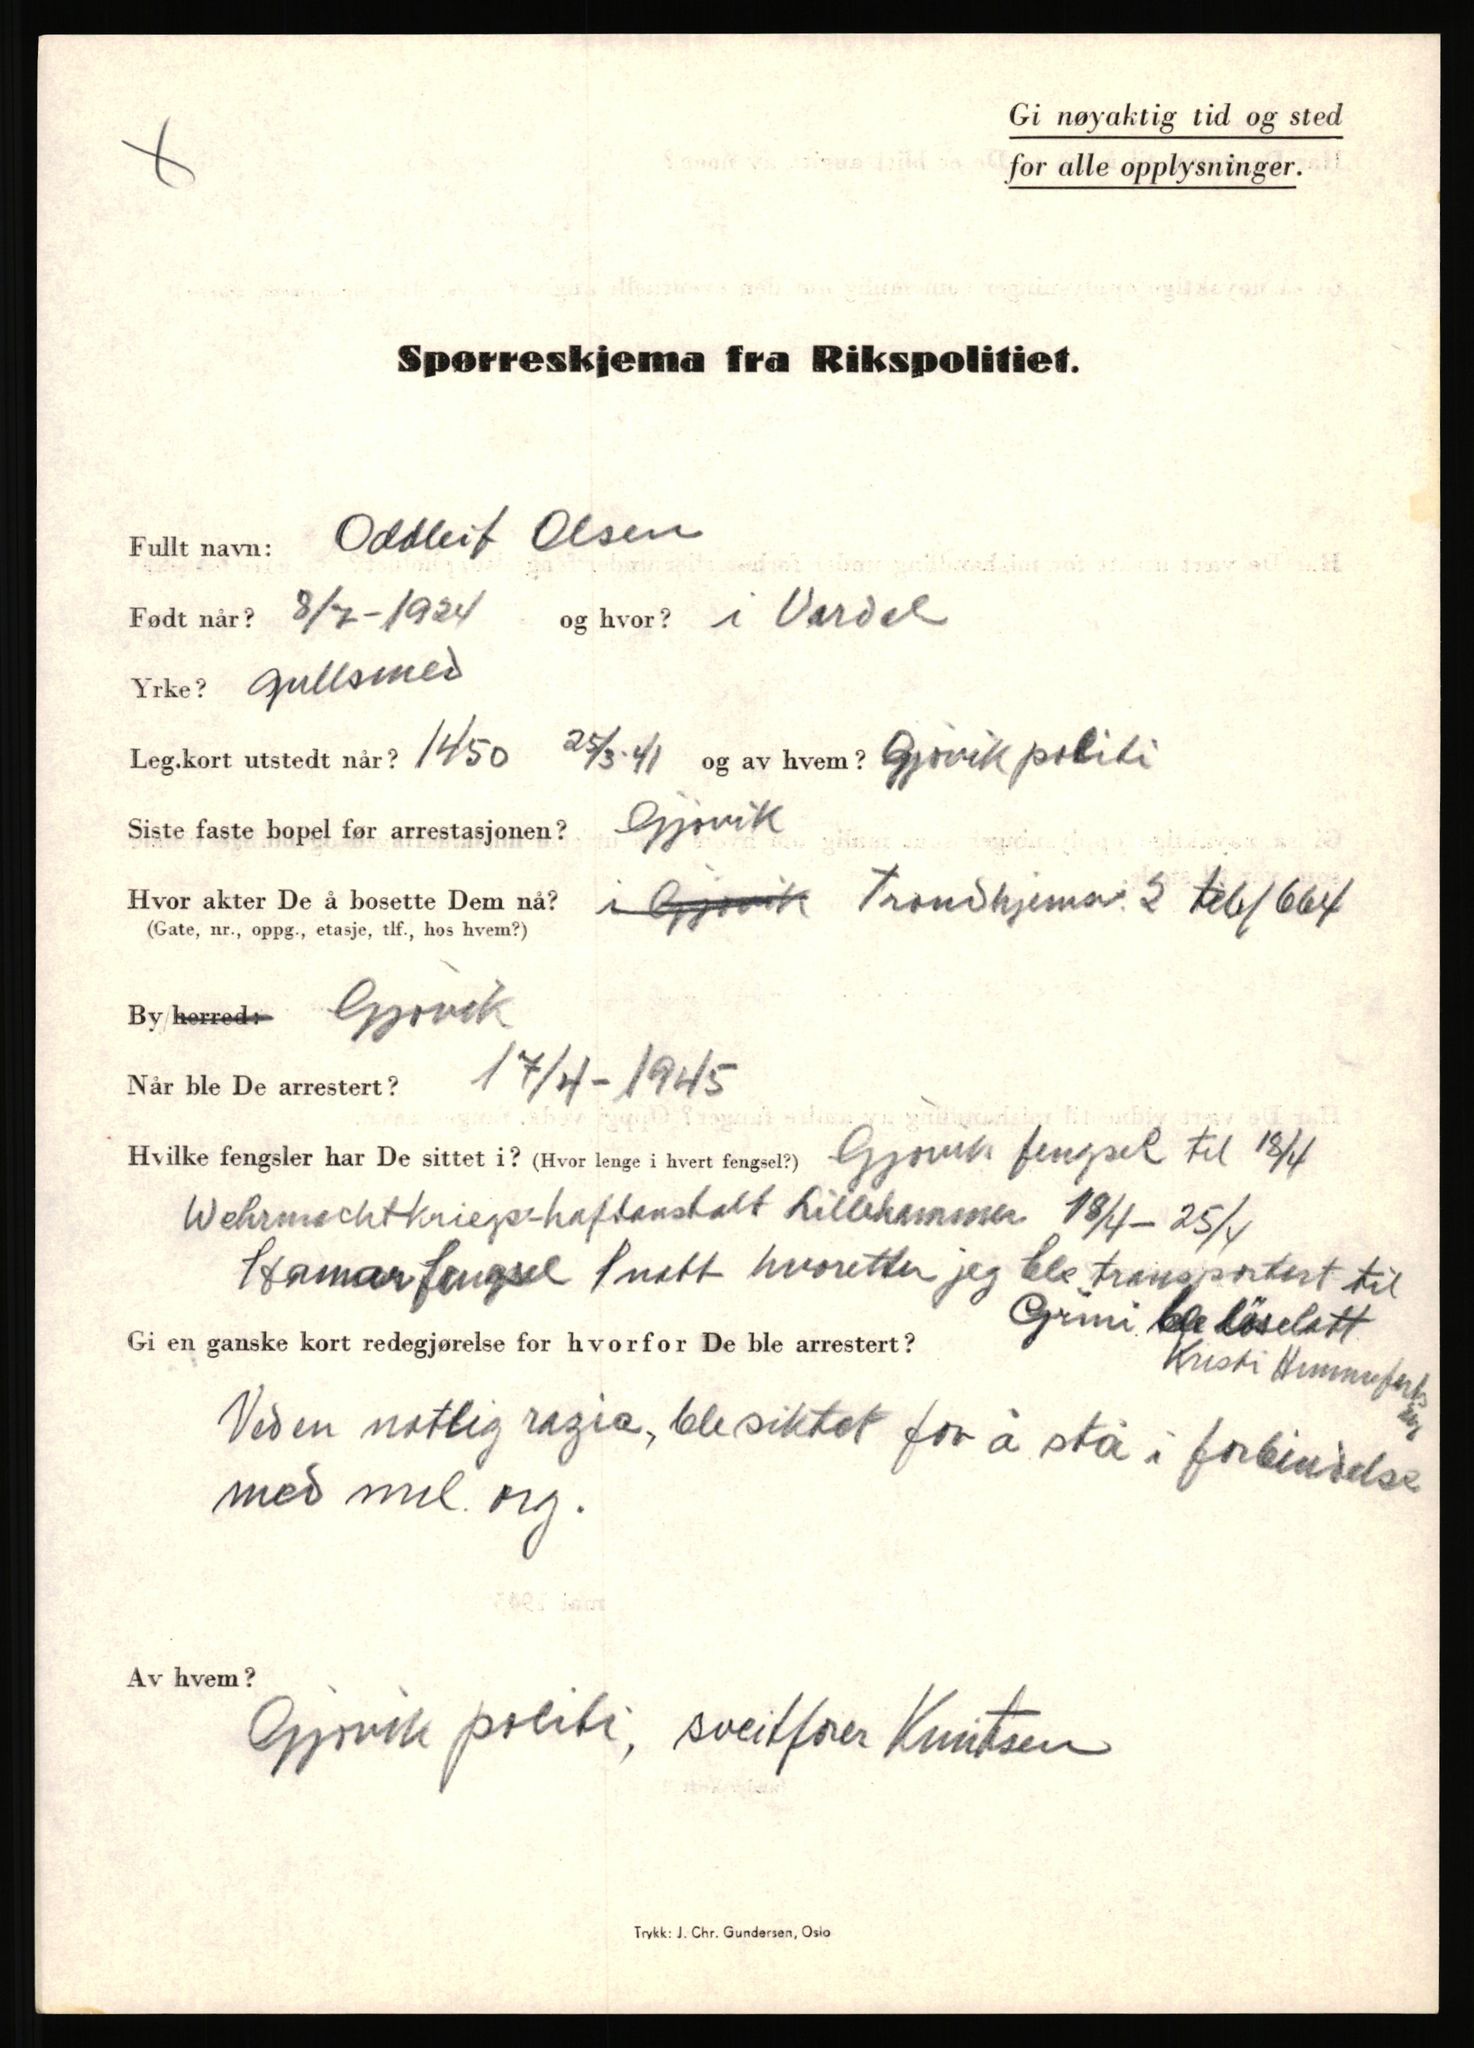 Gi nøyaktig tid og sted
for alle opplysninger.
Spørreskjema fra Rikspolitiet.
Fullt navn: Oddleif Olsen
Født når? 8/7-1924 og hvor? i Vardal
Yrke? gullsmed
Leg.kort utstedt når? 1450 25/3-41 og av hvem? Gjøvik politi
Siste faste bopel før arrestasjonen? Gjøvik
Hvor akter De å bosette Dem nå? i Gjøvik Trondhjemsv. 2 telf 664
(Gate, nr., oppg., etasje, tlf., hos hvem?)
By/herred: Gjøvik
Når ble De arrestert? 17/4-1945
Hvilke fengsler har De sittet i? (Hvor lenge i hvert fengsel?) Gjøvik fengsel til 18/4
Wehrmachtkriegs-haftanstalt Lillehammer 18/4-25/4
Hamar fengsel 1 natt hvoretter jeg ble transportert til
Grini. ble löslatt
Gi en ganske kort redegjørelse for hvorfor De ble arrestert?
Kristi Himmelfarts
dag
Ved en natlig razia, ble siktet for å stå i forbindelse
med mil. org.
Av hvem?
Gjøvik politi, sveitfører Knutsen
Trykk: J. Chr. Gundersen, Oslo